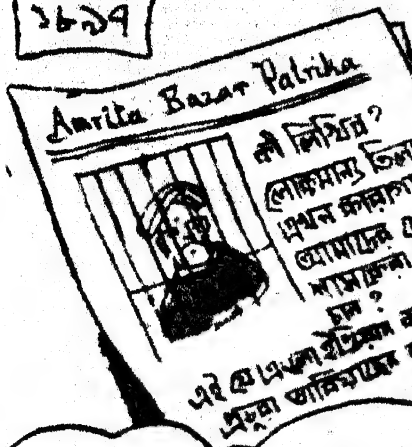 ১৮৯৭
Amrita Bazar Patrika
কী লিখিব?
লোকমান্য তিল
এখন কারাগা
আমাদের
চান?
এই যে এখন ইন্ডিয়ান
প্রভুরা ভাবিয়াছেন